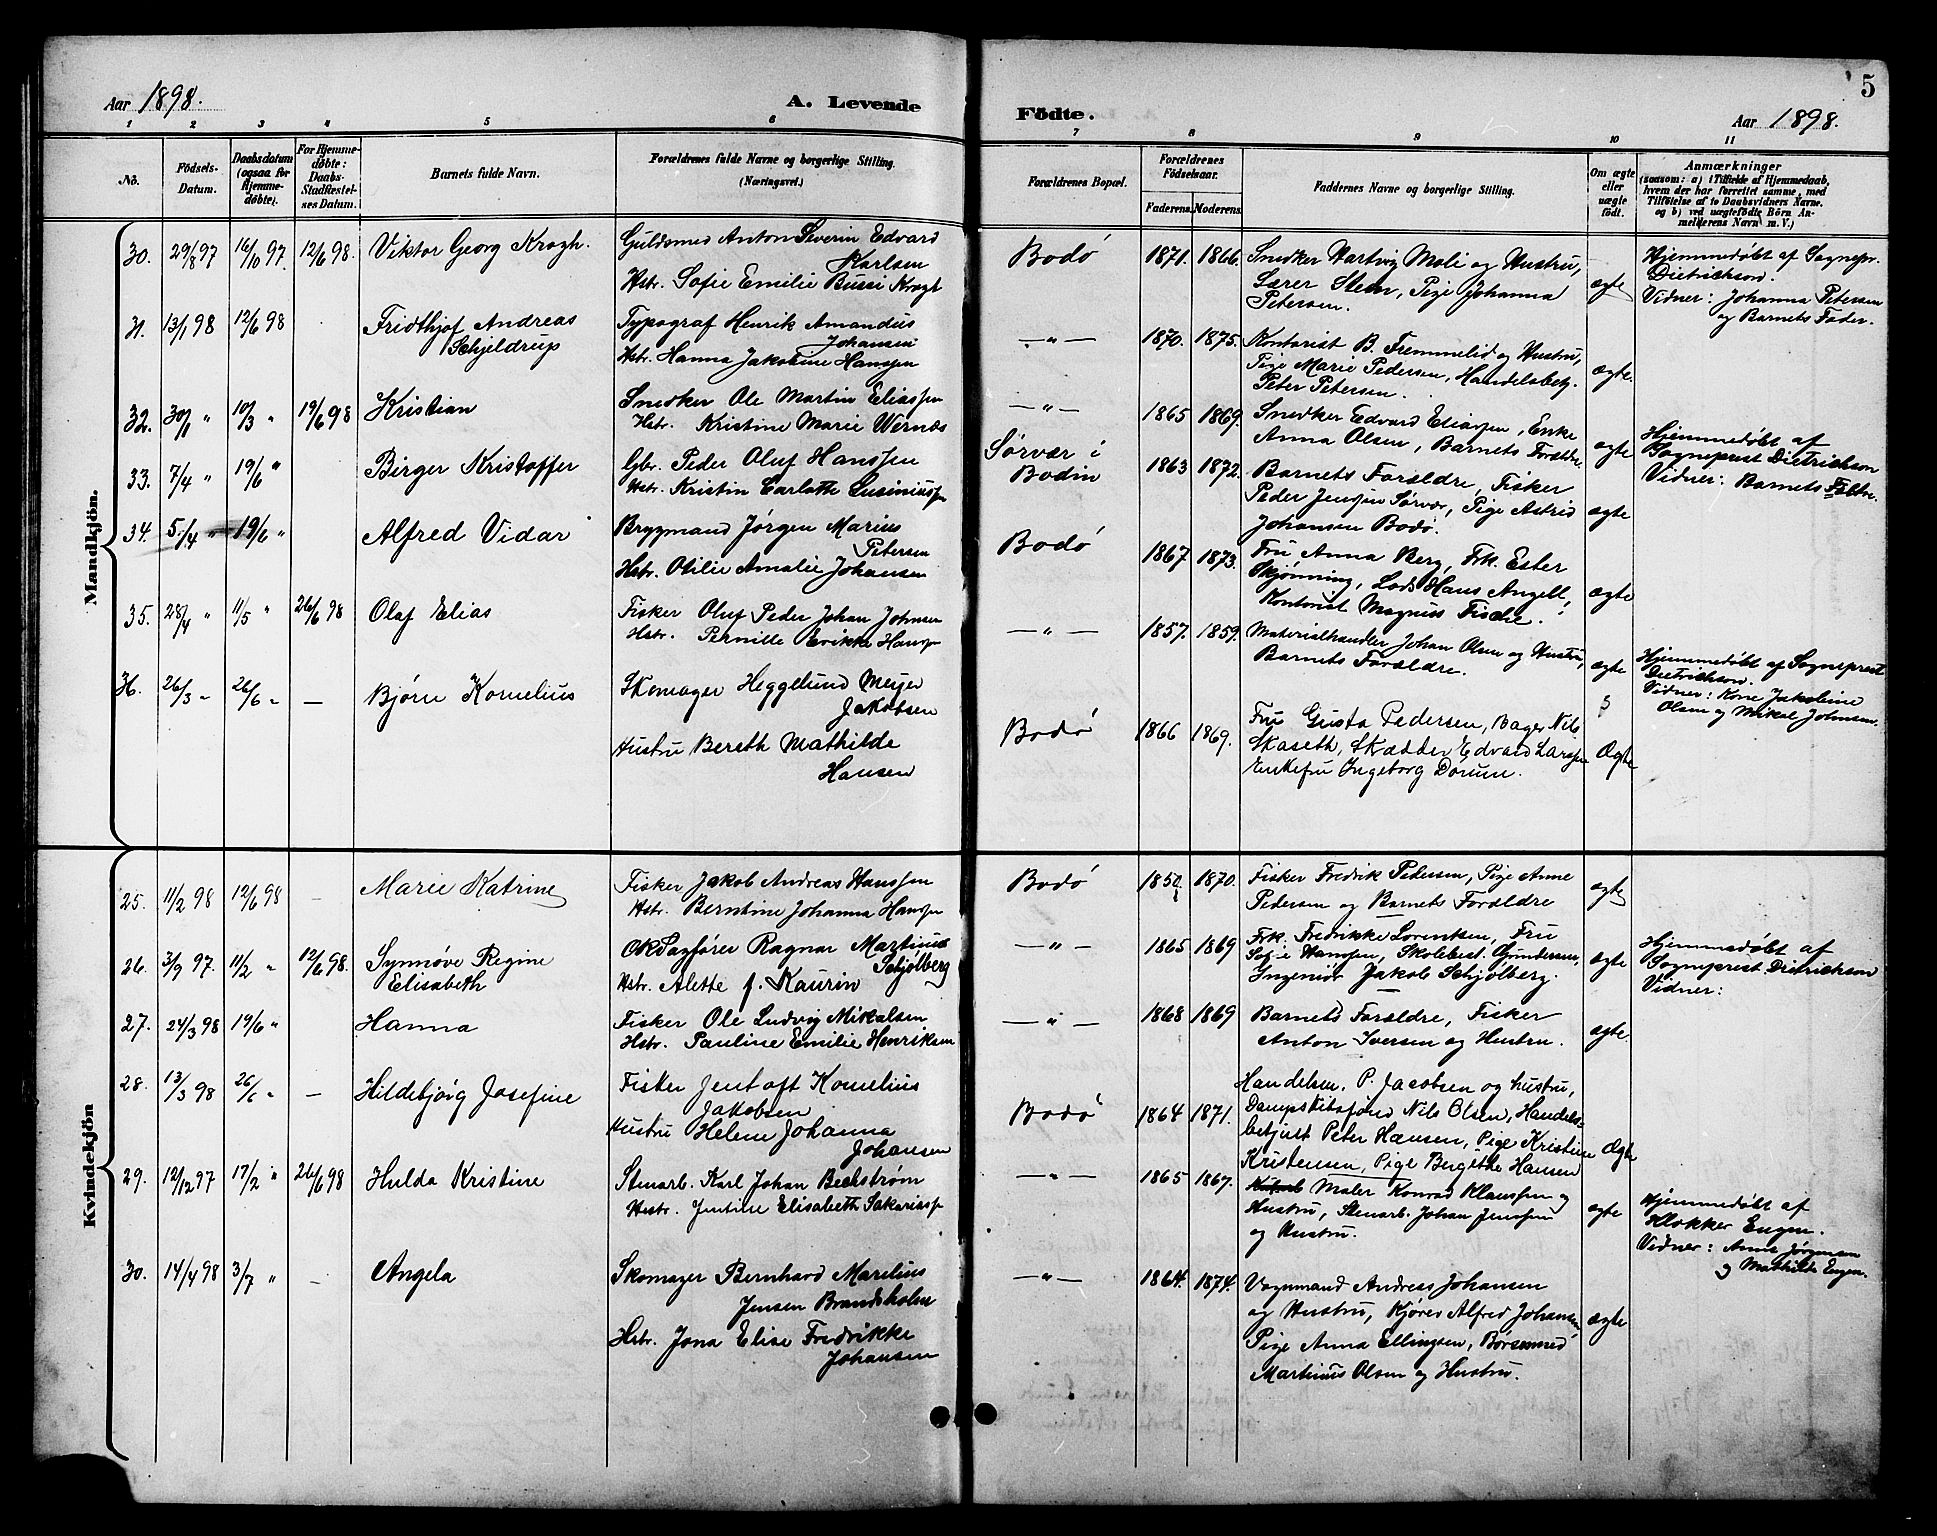 5
Aar 1898.
A. Levende
Födte.
Aar 1898.
1 2 3 4 5 6 7 8 9 10 11
No.
Födsels-Datum.
Daabsdatum (ogsaa for Hjemme-døbte).
For Hjemme-døbte: Daabs-Stadfæstel-ses Datum.
Barnets fulde Navn.
Forældrenes fulde Navne og borgerlige Stilling.
(Næringsvei.)
Forældrenes Bopæl.
Forældrenes Födselsaar.
Faderens. Moderens.
Faddernes Navne og borgerlige Stilling.
Om ægte eller uægte født.
Anmærkninger
(saasom: a) i Tilfælde af Hjemmedaab,
hvem der har forrettet samme, med
Tilföielse af to Daabsvidners Navne.
og b) ved uægtefödte Börn An-
melderens Navn m. V.)
Mandkjön.
30. 29/8 97 16/10 97. 12/6 98. Viktor Georg Krogh. Guldsmed Anton Severin Edvard
Karlsen
Hstr. Sofie Emilie Bussi Krogh
Bodø 1871. 1866. Snedker Hartvig Moli og Hustru,
Lærer Steen, Pige Johanna
Petersen. ægte
Hjemmedøbt af Sognepr.
Dietrichson.
Vidner: Johanna Petersen
og Barnets Fader.
31. 13/1 98 12/6 98 Fridthjof Andreas
Schjeldrup
Typograf Henrik Amandus
Johansen
Hstr. Hanna Jakobine Hanssen
— " — 1870. 1875. Kontorist B. Fremmelid og Hustru,
Pige Marie Pedersen, Handelsbetj.
Peter Petersen. ægte.
32. 30/1 " 10/3 " 19/6 98 Kristian Snedker Ole Martin Eliassen
Hstr. Kristine Marie Wernæs
— " — 1865 1869. Snedker Edvard Eliassen, Enke
Anna Olsen, Barnets Forældre ægte
Hjemmedøbt af
Sogneprest Dietrichson
Vidner: Barnets Fældre.
33. 7/4 " 19/6 " Birger Kristoffer Gbr. Peder Oluf Hanssen
Hstr. Kristin Carlotte Lusiniussen
Sørvær i
Bodin 1863 1872. Barnets Forældre, Fisker
Peder Jensen Sørvær, Pige Astrid
Johansen Bodø. ægte
34. 5/4 " 19/6 " Alfred Vidar Brygmand Jørgen Marius
Petersen
Hstr. Otilie Amalie Johansen
Bodø 1867 1873. Fru Anna Berg, Frk. Ester
Skjønning, Lods Hans Angell,
Kontorist Magnus Fische. ægte
35. 28/4 " 11/5 " 26/6 98 Olaf Elias Fisker Oluf Peder Johan Johnsen
Hstr. Pernille Erikke Hansen
— " — 1857. 1859. Materialhandler Johan Olsen og Hustru,
Barnets Forældre. ægte
Hjemmedøbt af Sogneprest
Dietrichson.
Vidner: Kone Jakobine
Olsen og Mikal Johnsen.
36. 26/3 " 26/6 " — Bjørn Kornelius Skomager Heggelund Meyer
Jakobsen
Hustru Bereth Mathilde
Hansen
Bodø 1866 1869. Fru Gusta Pedersen, Bager Nils
Skaseth, Skrædder Edvard Larssen
Enkefru Ingeborg Dorum. Ægte
Kvindekjön
25. 11/2 98 12/6 98 — Marie Katrine Fisker Jakob Andreas Hanssen
Hstr. Berntine Johanna Hansen
Bodø 1850 1870. Fisker Fredrik Pedersen, Pige Anne
Pedersen og Barnets Forældre ægte
26. 3/9 97. 11/2 " 12/6 98. Synnøve Regine
Elisabeth
OR Sagfører Ragnar Martinus
Schjølberg
Hstr. Alette f. Kaurin
— " — 1865 1869 Frk. Fredrikke Lorentzen, Fru
Sofie Hanssen, Skolebest. Gundersen,
Ingeniør Jakob Schjølberg. ægte
Hjemmedøbt af
Sogneprest Dietrichson
Vidner:
27. 24/3 98 19/6 " Hanna Fisker Ole Ludvig Mikalsen
Hstr. Pauline Emilie Henriksen
— " — 1868 1869 Barnets Forældre, Fisker
Anton Iversen og Hustru. ægte.
28. 13/3 98 26/6 " — Hildebjørg Josefine Fisker Jentoft Kornelius
Jakobsen
Hustru Helene Johanna
Johansen
Bodø 1864 1871. Handelsm. P. Jacobsen og hustru,
Dampskibsfører Nils Olsen, Handels-
betjent Peter Hansen, Pige Kristine
Kristensen, Pige Bergithe Hansen Ægte
29. 12/12 97 17/2 " 26/6 98 Hulda Kristine Stenarb. Karl Johan Beckstrøm
Hstr. Jentine Elisabeth Sakariassen
— " — 1865 1867. Maler Konrad Klaussen og
Hustru, Stenarb. Johan Jenssen
og Hustru. ægte
Hjemmedøbt af
Klokker Engen.
Vidner: Anna Jørgensen
og Mathilde Engen.
30. 14/4 98 3/7 " — Angela Skomager Bernhard Marelius
Jensen Brandsholm
Hstr. Jona Elise Fredrikke
Johansen
— " — 1864. 1874. Vognmand Andreas Johansen
og Hustru, Kjører Alfred Johansen,
Pige Anna Ellingsen, Børsemed
Martinus Olsen og Hustru. ægte